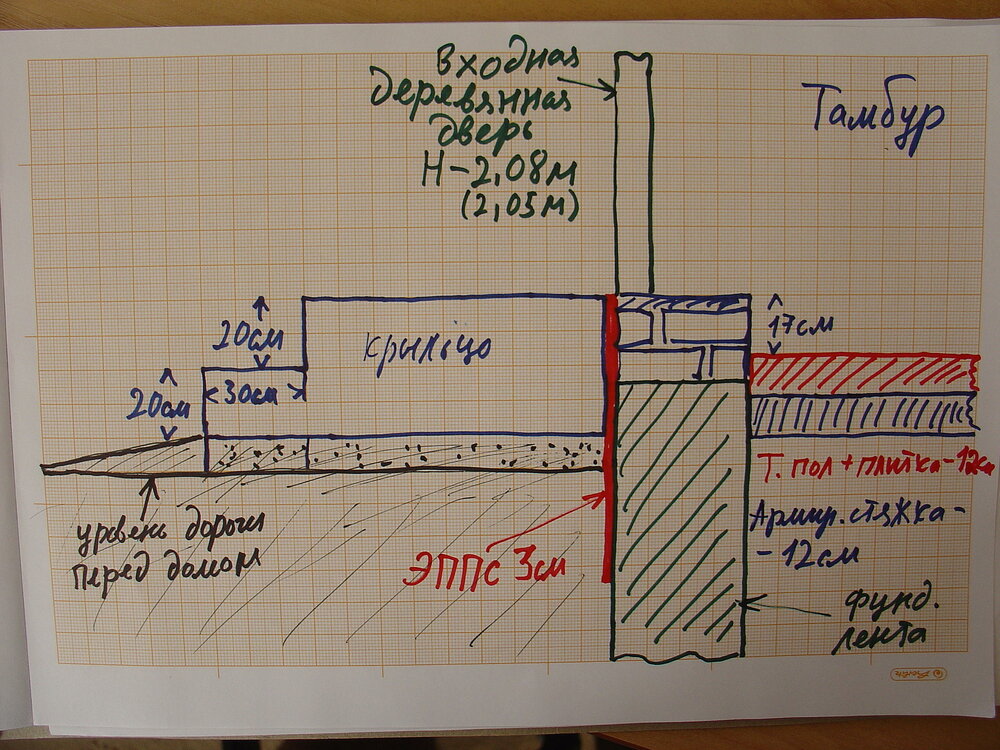 входная
деревянная
дверь
Н-2,08м
(2,05м)
Тамбур
20см
17см
крыльцо
20см
30см
Т. пол + плитка-12см
уровень дороги
перед домом
ЭППС 3см
Армир. стяжка-
-12см
фунд.
лента